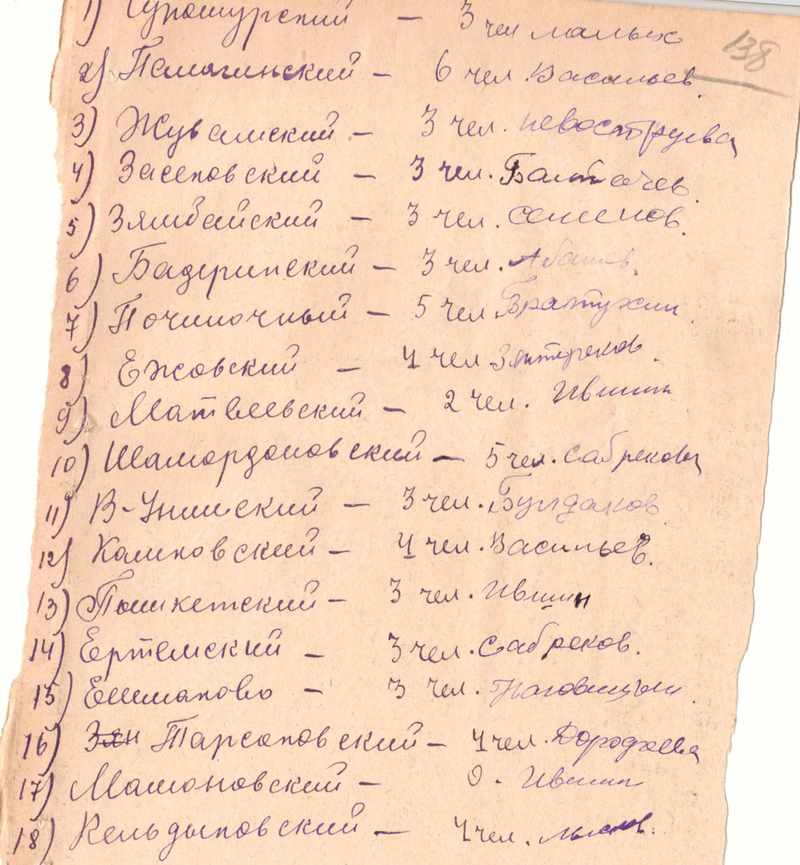 138
1) Сухошурский – 3 чел Малых
2) Помагинский – 6 чел Васильев.
3) Жувамский – 3 чел. Невоструева
4) Засековский – 3 чел. Балтачев.
5) Зямбайский – 3 чел. Семенов.
6) Бадеринский – 3 чел. Абашев.
7) Починочный – 5 чел Братухин.
8) Ежовский – 4 чел
9) Матвеевский – 2 чел. Ившин
10) Шамордановский – 5 чел. Сабрекова
11) В-Унинский – 3 чел. Булдаков
12) Калиновский – 4 чел. Васильев.
13) Пышкетский – 3 чел. Ившин
14) Ертемский – 3 чел. Сабреков.
15) Ешмаково – 3 чел.
16) Тарсаковский – 4 чел. Дородхева
17) Мамоновский – 0 . Ившин
18) Кельдыковский – 4 чел. Лыслов.